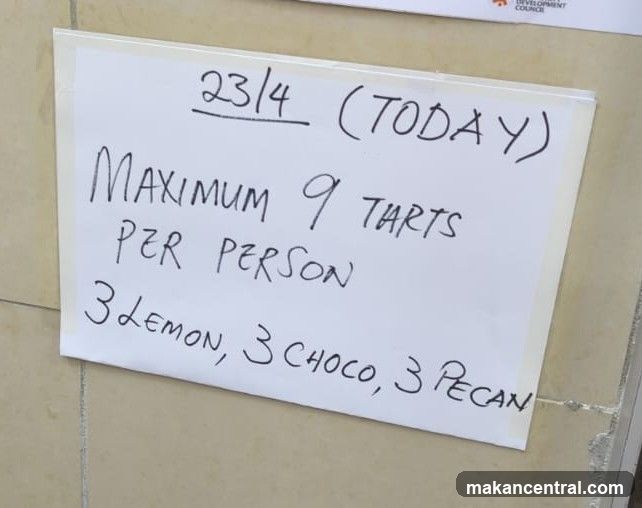 DEVELOPMENT
COUNCIL
23/4 (TODAY)
MAXIMUM 9 TARTS
PER PERSON
3 LEMON, 3 CHOCO, 3 PECAN
makancentral.com